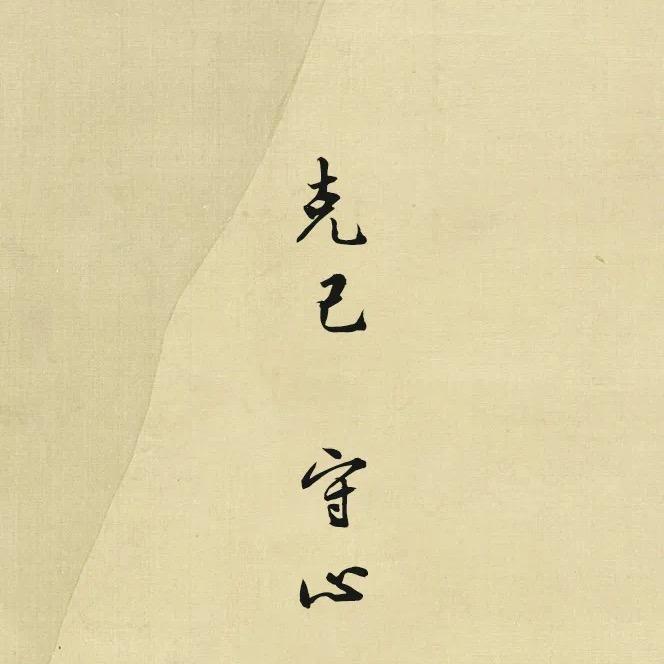 克己 守心